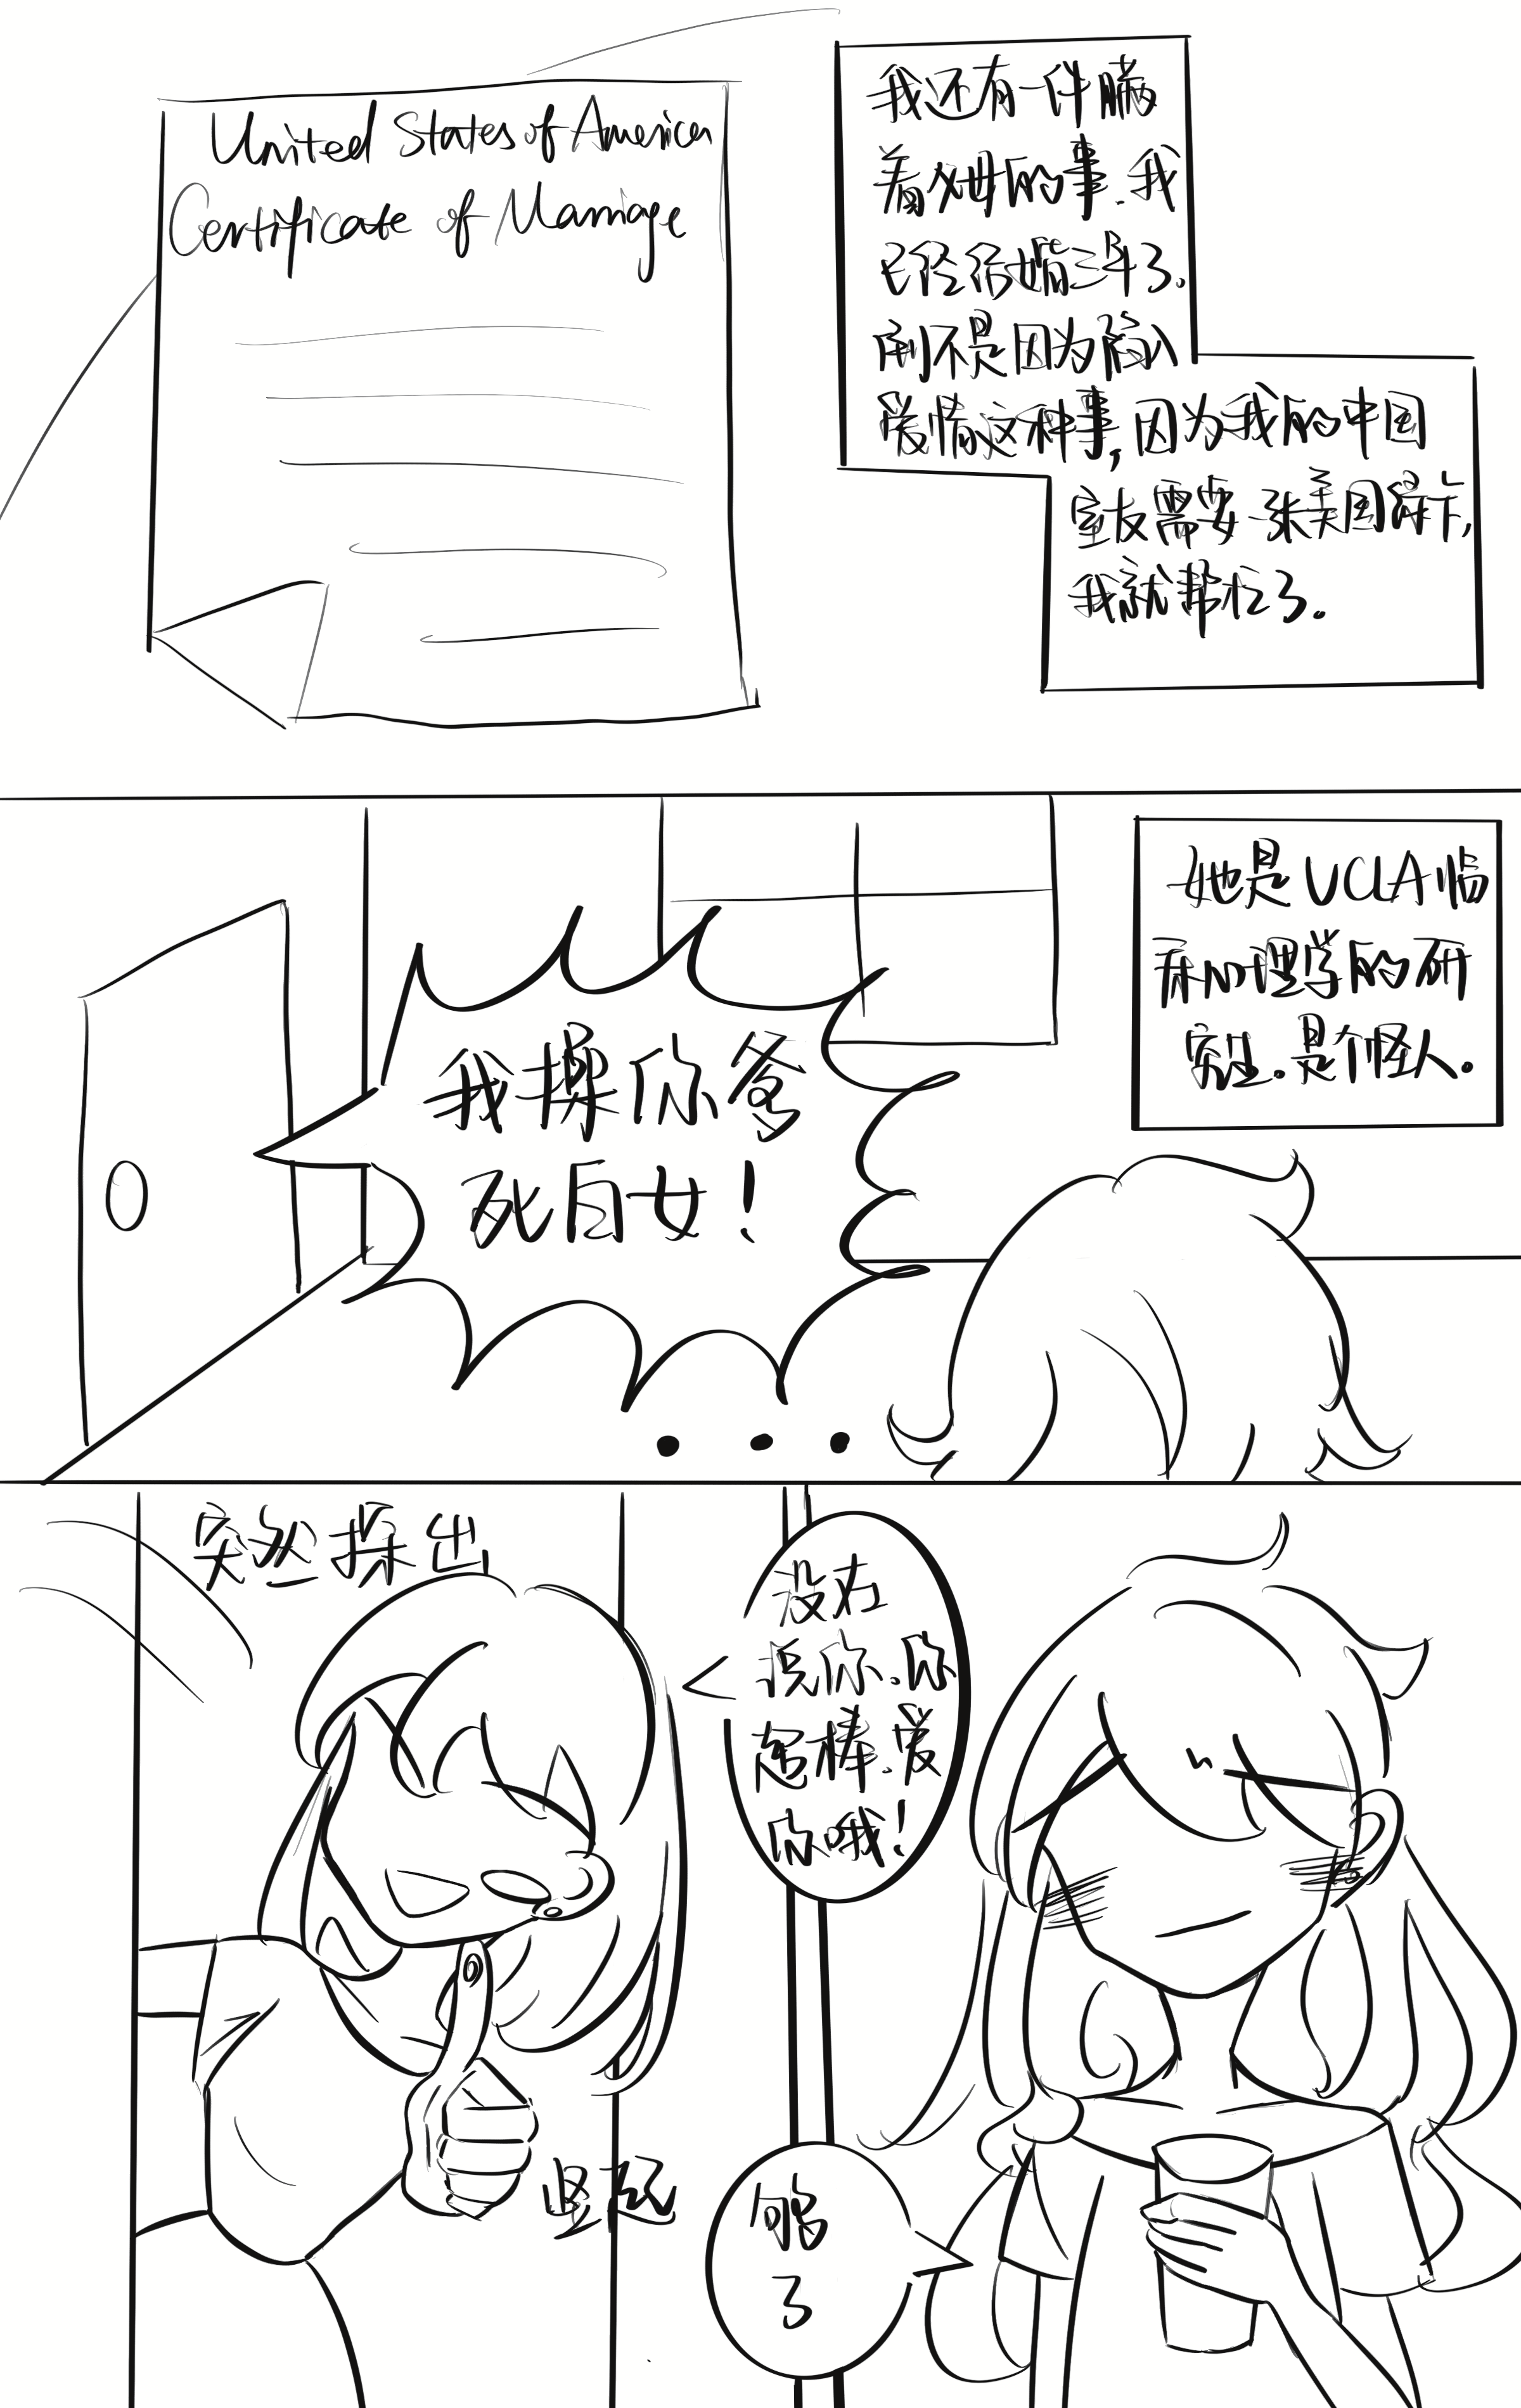 United States of America
Certificate of Marriage
我还有一件瞒
着父母的事.我
已经结婚三年了.
倒不是因为陷入
爱情这种事,因为我的中国
室友需要一张美国绿卡,
我就帮忙了。
她是UCLA临
床心理学的研
究生.是个怪人。
我操你爹
死白女!
...
突然探出
没在
说你.你
超棒.爱
你哦!
竖起
够
了